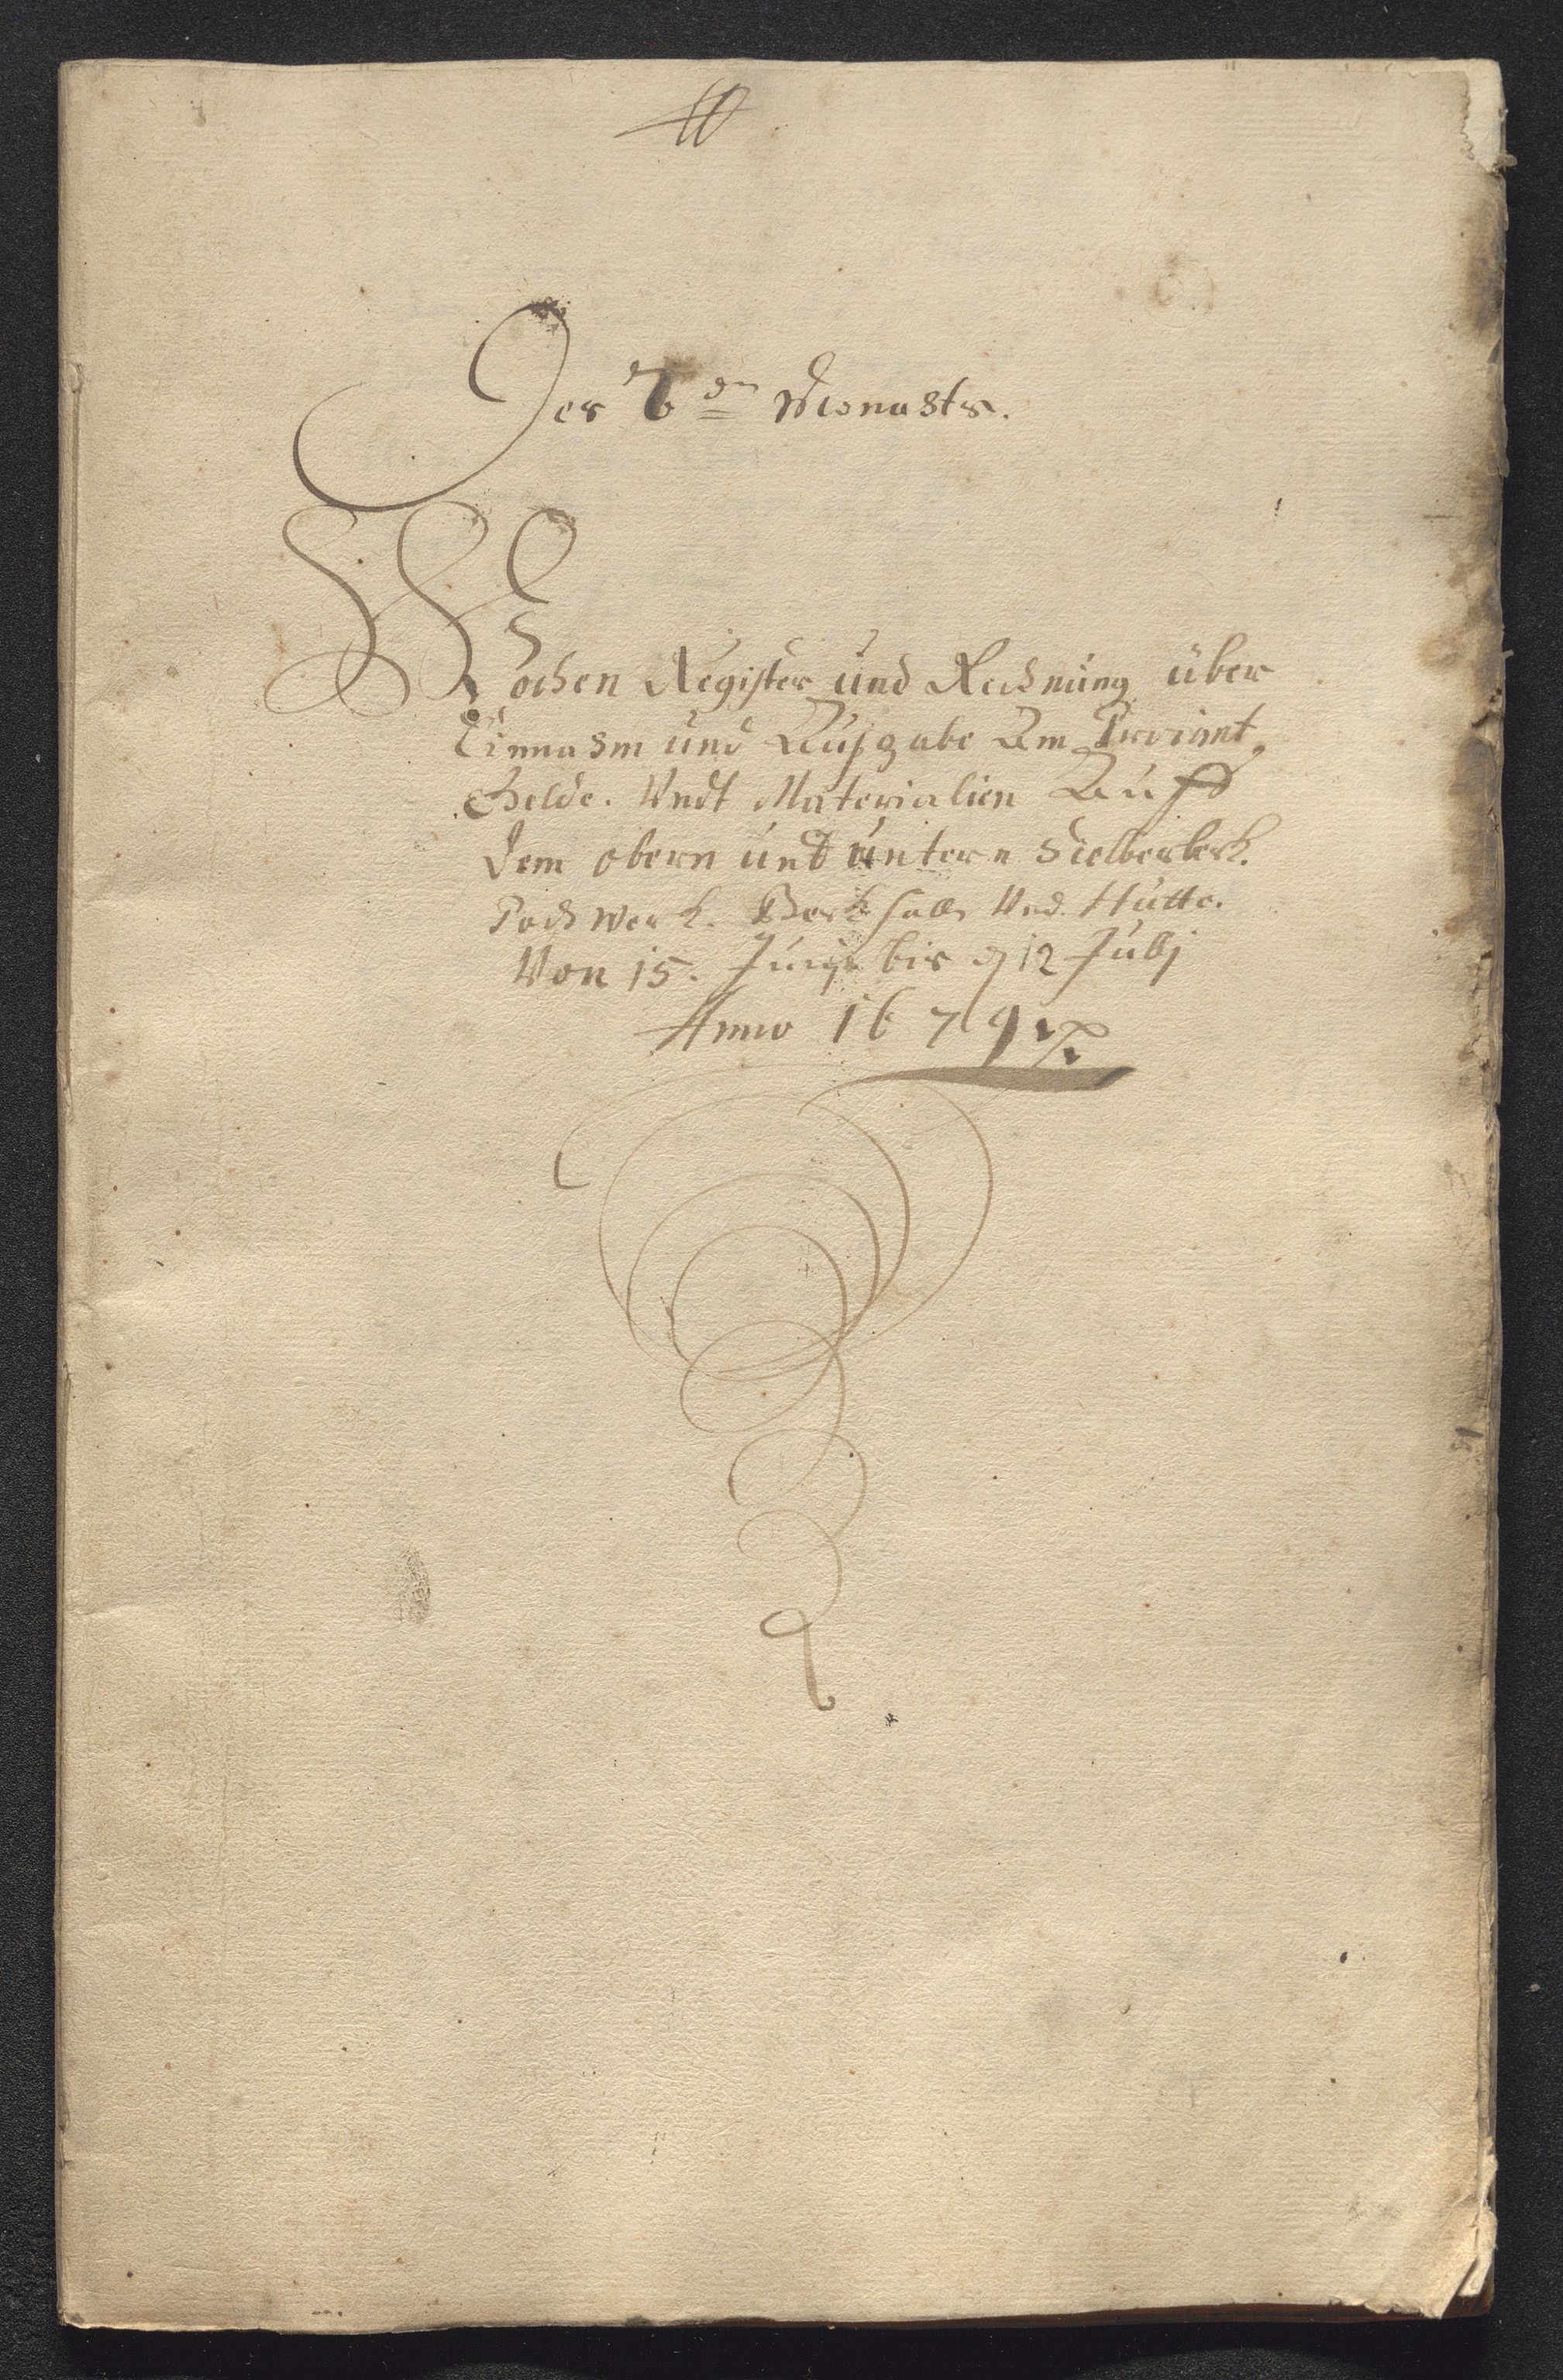 Des 6den Monahts.
Wochen Register und Rechnung über
Einnahm und Außgabe Am Proviant
Gelde. Vndt Materialien Auff
dem obern und untern Sielberberk.
Poch werk. Vnd. Hütte.
Von 15. Junij bis d 12 Julij
Anno 1679